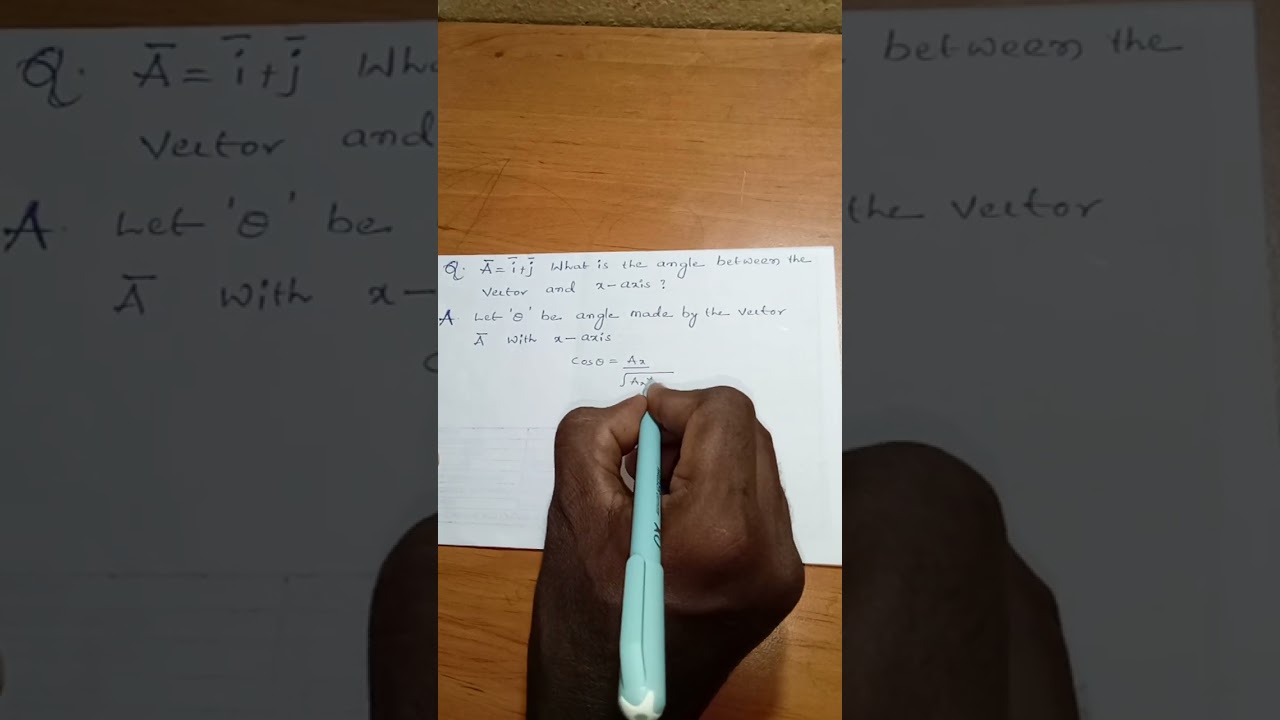 Q. A̅ = i̅ + j̅ What is the angle between the
vector and x-axis?
A. Let 'θ' be angle made by the vector
A̅ with x-axis
Cosθ = Ax
√Ax